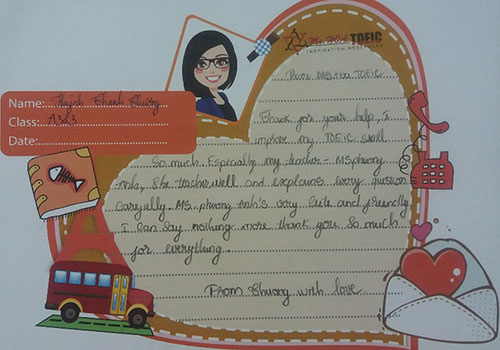 Ms HOA TOEIC
INSPIRATION
Name:
Class:
Date:
Dear, Ms. Hoa TOEIC
Thank for your help, I
improve my TOEIC skill
So much. Especially, my teacher - Ms phuong
anh, She teacher well and explains every question
carefully. Ms. phuong anh's very cute and friendly
I can say nothing more, thank you so much
for everything.
From Thuong with love